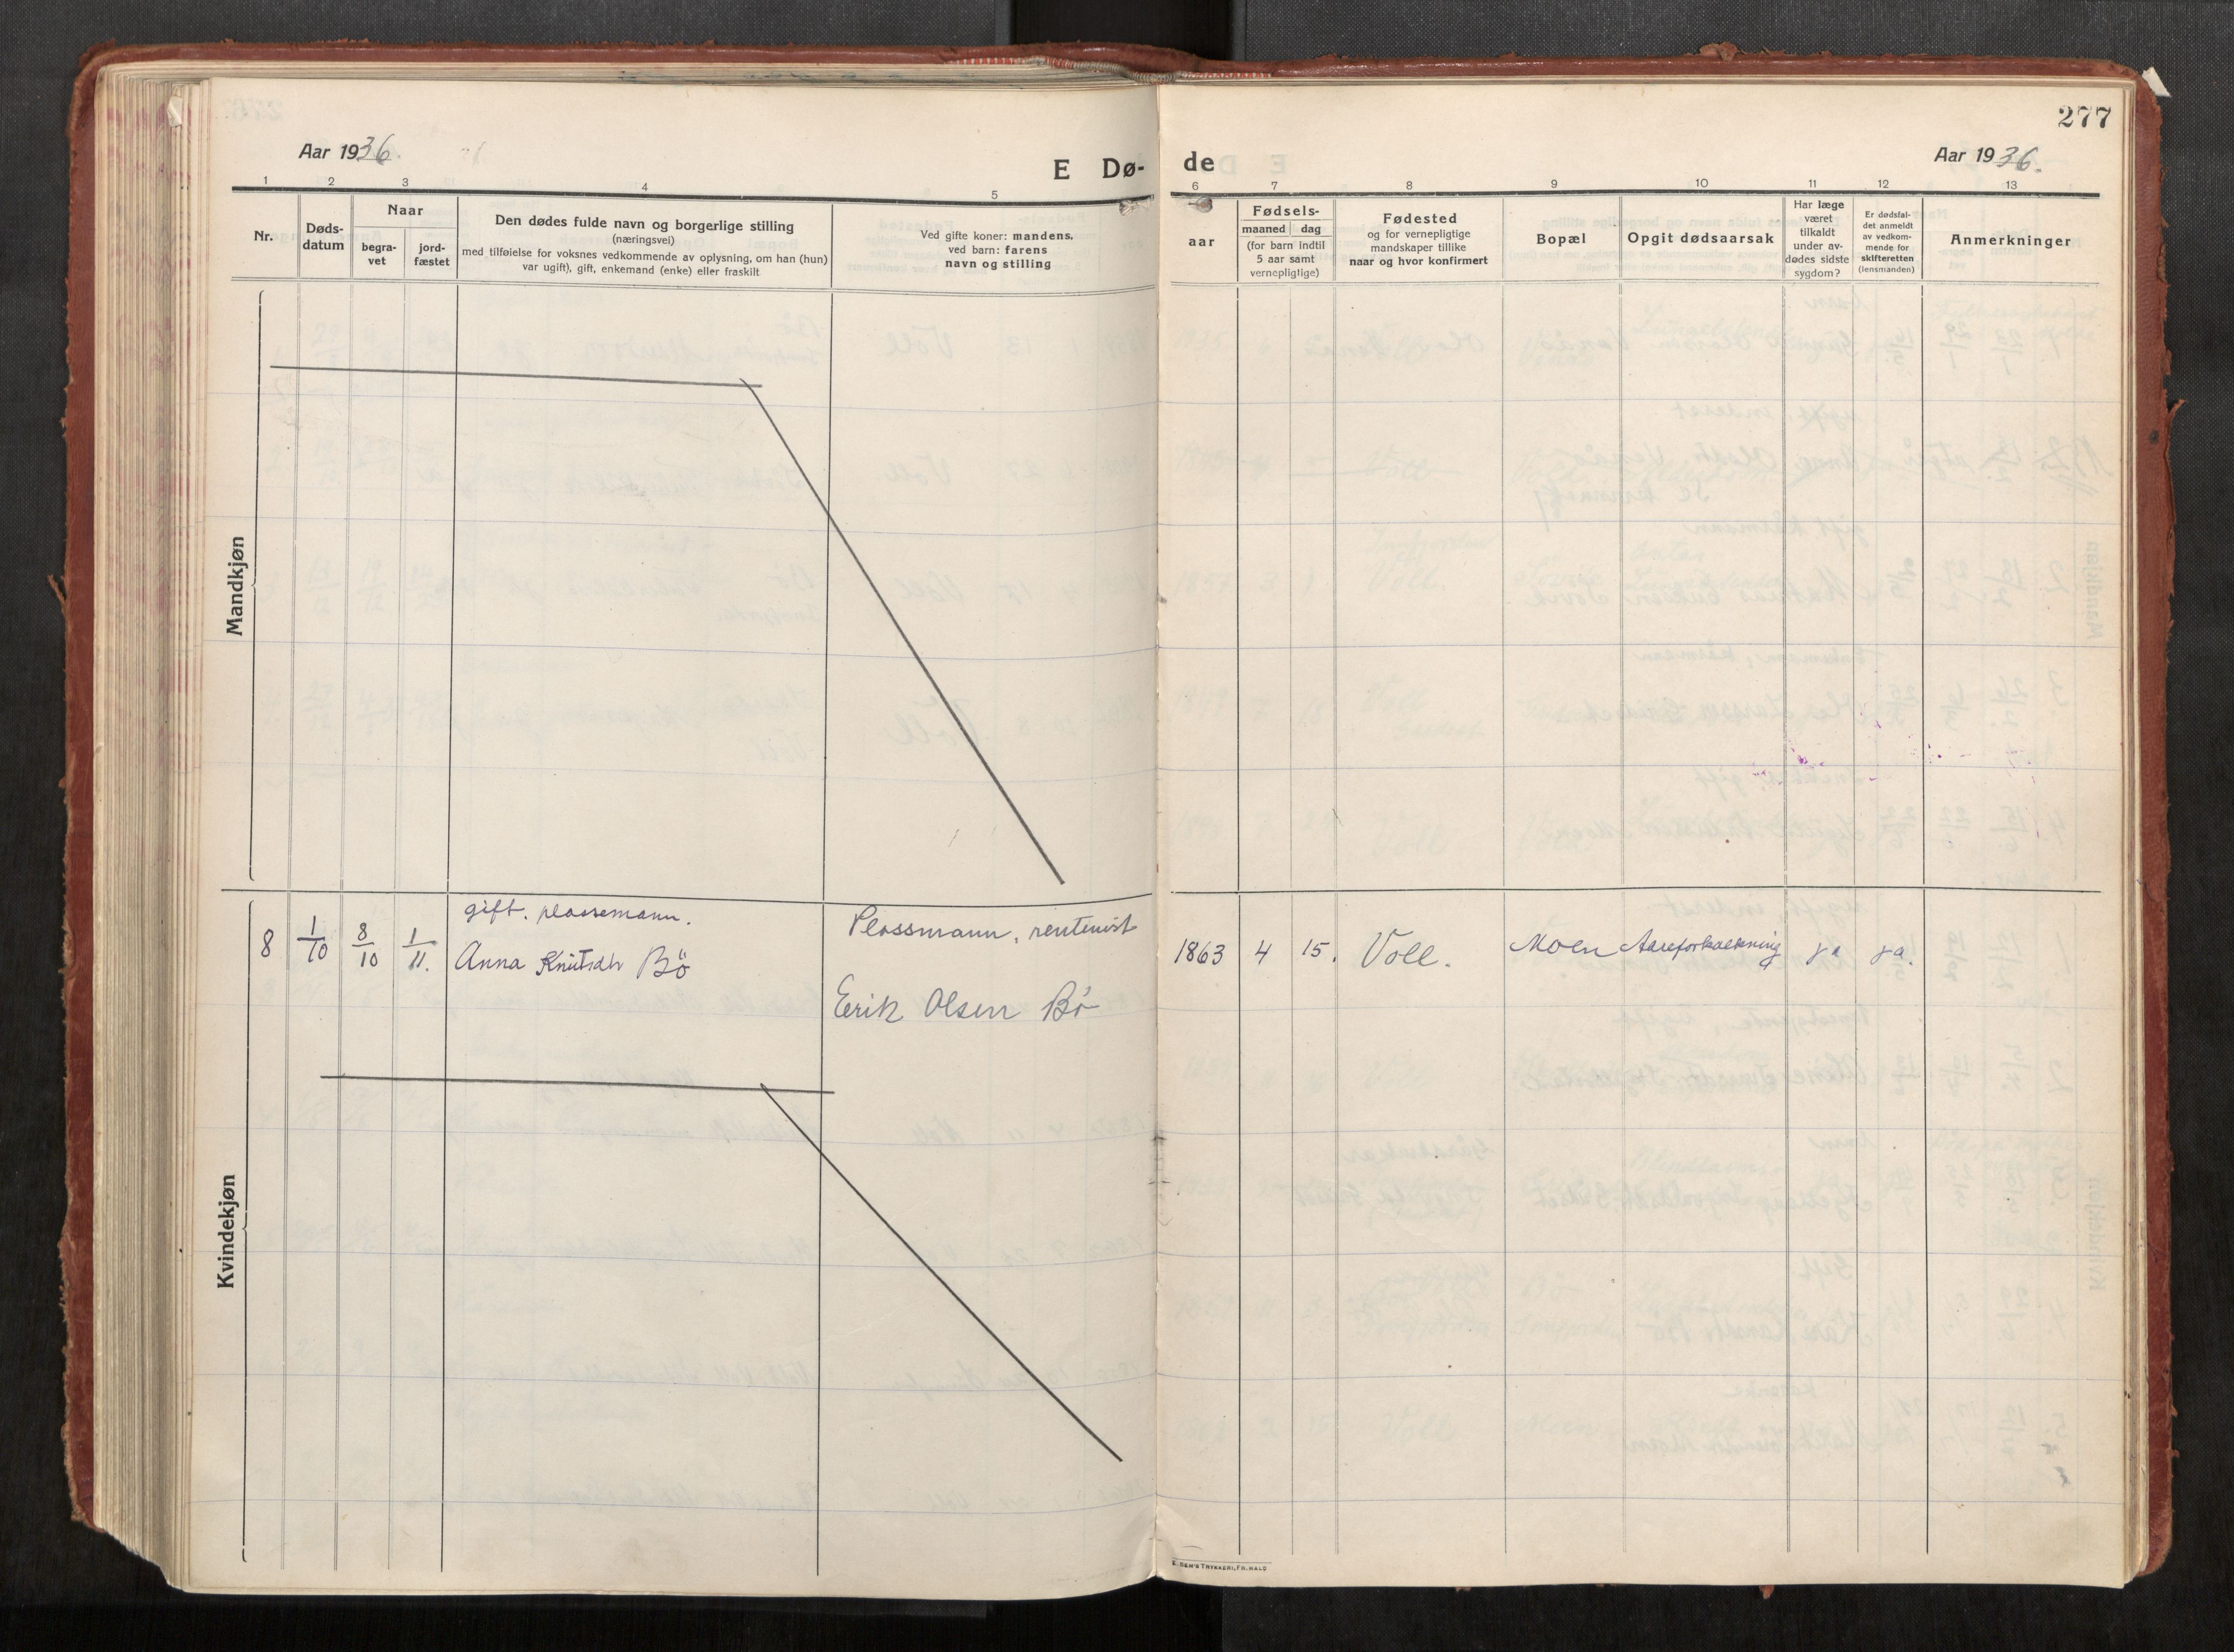 277
Aar 1936.
E Dø-
de
Aar 1936.
1 2 3 4 5 6 7 8 9 10 11 12 13
Nr.
Døds-
datum
Naar
begra-
vet
jord-
fæstet
Den dødes fulde navn og borgerlige stilling
(næringsvei)
med tilføielse for voksnes vedkommende av oplysning, om han (hun)
var ugift), gift, enkemand (enke) eller fraskilt
Ved gifte koner: mandens,
ved barn: farens
navn og stilling
aar
Fødsels-
maaned dag
(for barn indtil
5 aar samt
vernepligtige)
Fødested
og for vernepligtige
mandskaper tillike
naar og hvor konfirmert
Bopæl
Opgit dødsaarsak
Har læge
været
tilkaldt
under av-
dødes sidste
sygdom?
Er dødsfal-
det anmeldt
av vedkom-
mende for
skifteretten
(lensmanden)
Anmerkninger
Mandkjøn
Kvindekjøn
gift. plassemann.
8 1/10 8/10 1/11. Anna Knutsdtr Bö
Plassmann, rentenist
Eerik Olsen Bö
1863 4 15. Voll. Moen Aareforkalkning ja ja.